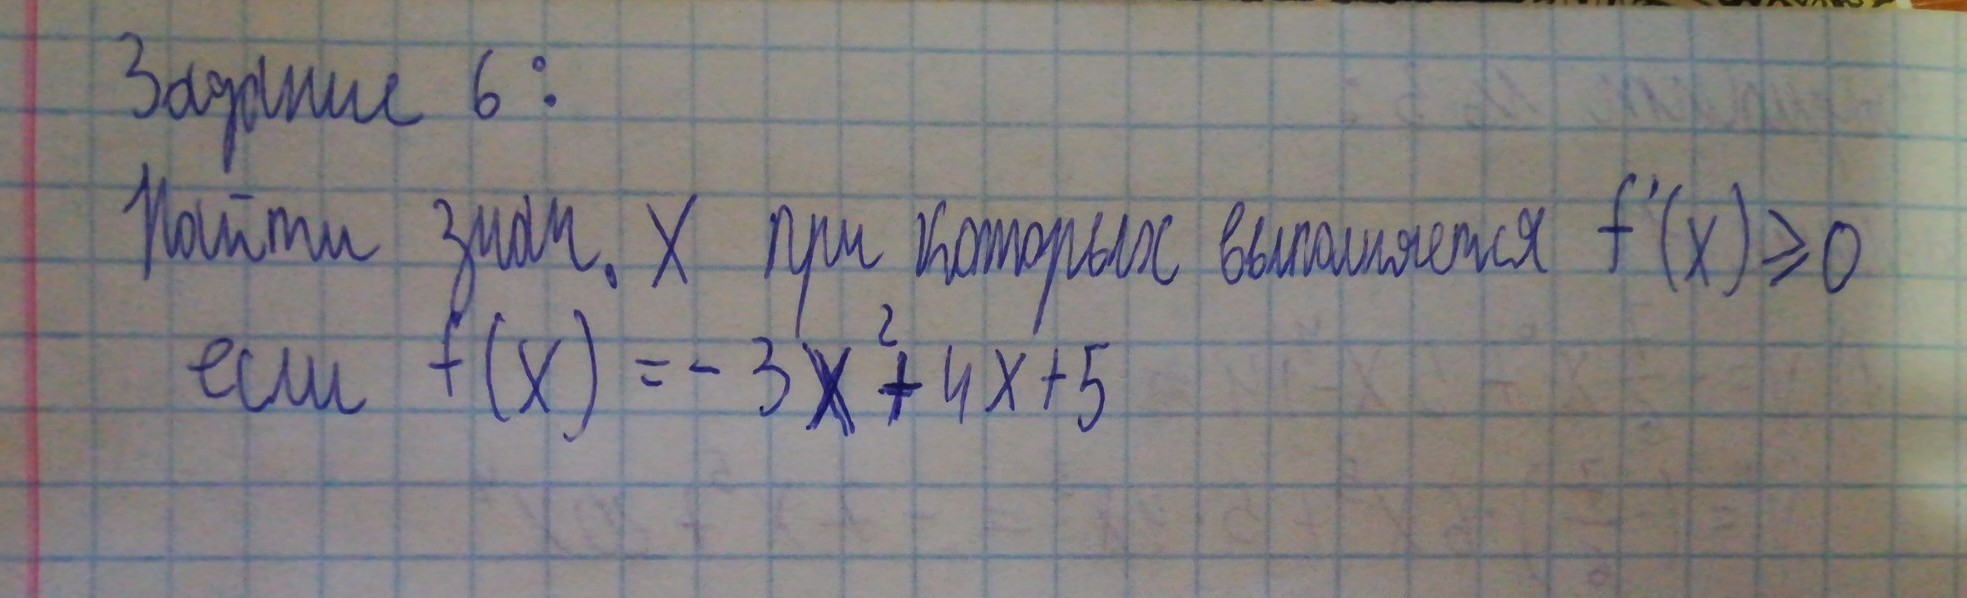 Задание 6:
Найти знач. X при которых выполняется f'(x) ⩾ 0
если f(x) = - 3x² + 4x + 5